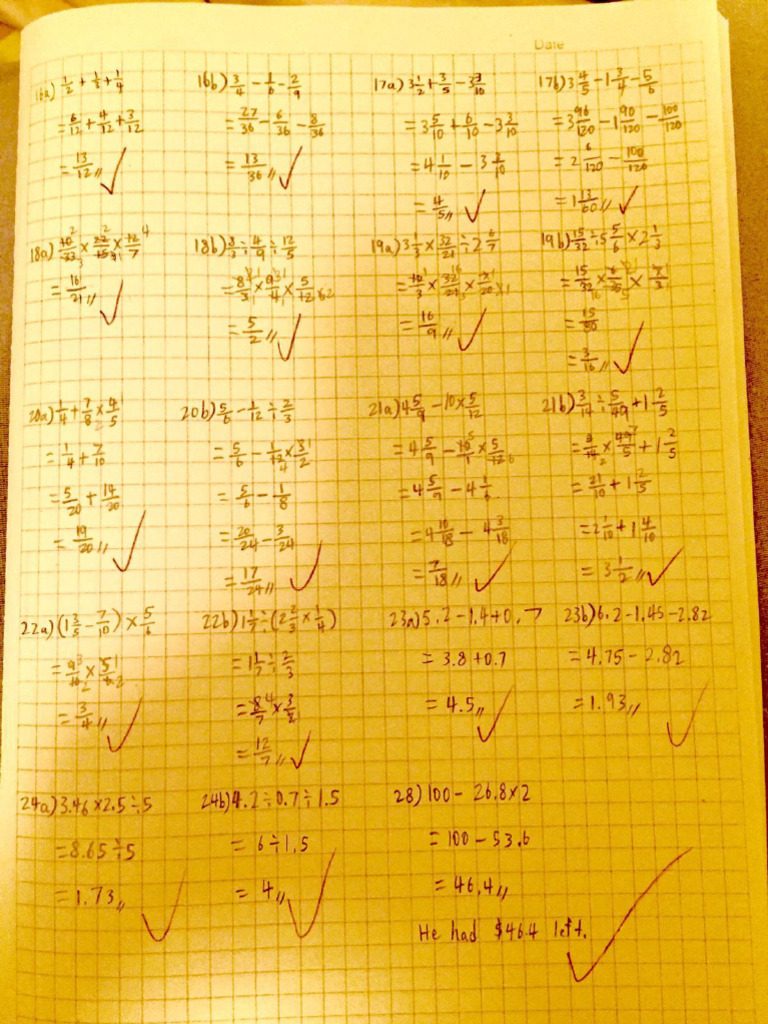 Date
16a) 1/2 + 1/3 + 1/4
= 6/12 + 4/12 + 3/12
= 13/12 //
16b) 3/4 - 1/6 - 2/9
= 27/36 - 6/36 - 8/36
= 13/36 //
17a) 3 1/2 + 3/5 - 3 3/10
= 3 5/10 + 6/10 - 3 3/10
= 4 1/10 - 3 3/10
= 4/5 //
17b) 3 4/5 - 1 3/4 - 5/6
= 3 96/120 - 1 90/120 - 100/120
= 2 6/120 - 100/120
= 1 13/60 //
18a)
= 16/21 //
18b) 8/3 ÷ 4/9 ÷ 12/5
= 8/3 × 9/4 × 5/12
= 5/2 //
19a) 3 1/3 × 32/21 ÷ 2 6/7
= 10/3 × 32/21 × 7/20
= 16/9 //
19b) 15/32 ÷ 5 5/6 × 2 1/3
= 15/32 × 6/35 × 7/3
= 15/80
= 3/16 //
20a) 1/4 + 7/8 × 4/5
= 1/4 + 7/10
= 5/20 + 14/20
= 19/20 //
20b) 5/6 - 1/12 ÷ 2/3
= 5/6 - 1/12 × 3/2
= 5/6 - 1/8
= 20/24 - 3/24
= 17/24 //
21a) 4 5/9 - 10 × 5/12
= 4 5/9 - 10/1 × 5/12
= 4 5/9 - 4 1/6
= 4 10/18 - 4 3/18
= 7/18 //
21b) 3/14 ÷ 5/49 + 1 2/5
= 3/14 × 49/5 + 1 2/5
= 21/10 + 1 2/5
= 2 1/10 + 1 4/10
= 3 1/2 //
22a) (1 3/5 - 7/10) × 5/6
= 9/10 × 5/6
= 3/4 //
22b) 1 1/7 ÷ (2 2/3 × 1/4)
= 1 1/7 ÷ 2/3
= 8/7 × 3/2
= 12/7 //
23a) 5.2 - 1.4 + 0.7
= 3.8 + 0.7
= 4.5 //
23b) 6.2 - 1.45 - 2.82
= 4.75 - 2.82
= 1.93 //
24a) 3.46 × 2.5 ÷ 5
= 8.65 ÷ 5
= 1.73 //
24b) 4.2 ÷ 0.7 ÷ 1.5
= 6 ÷ 1.5
= 4 //
28) 100 - 26.8 × 2
= 100 - 53.6
= 46.4 //
He had $46.4 left.